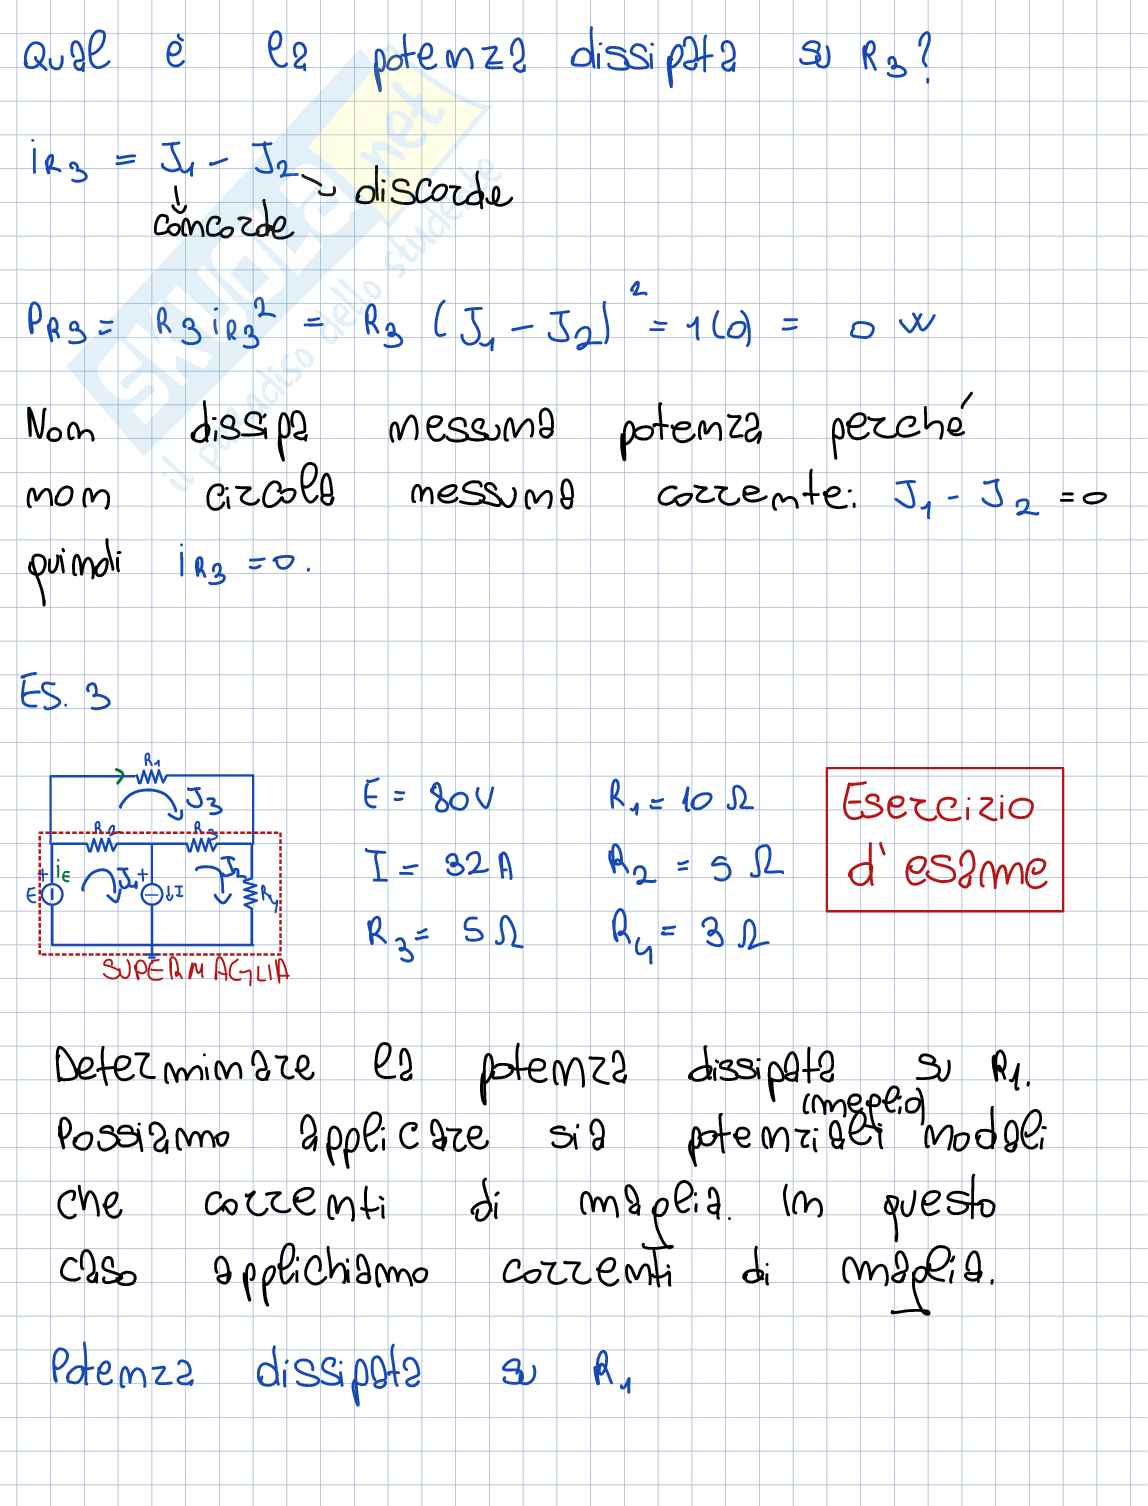 Qual è la potenza dissipata su R3?
iR3 = J1 - J2
concorde
discorde
PR3 = R3 iR3² = R3 (J1 - J2)² = 1(0) = 0 W
Non dissipa nessuna potenza perché
non circola nessuna corrente: J1 - J2 = 0
quindi iR3 = 0.
ES. 3
R1
J3
R2
R3
iE
+
E
J1
+
↓I
J2
R4
SUPERMAGLIA
E = 80V
R1 = 10 Ω
I = 32 A
R2 = 5 Ω
R3 = 5 Ω
R4 = 3 Ω
Esercizio
d'esame
Determinare la potenza dissipata su R1.
(meglio)
Possiamo applicare sia potenziali nodali
che correnti di maglia. In questo
caso applichiamo correnti di maglia.
Potenza dissipata su R1
SKUOLA.net
il paradiso dello studente